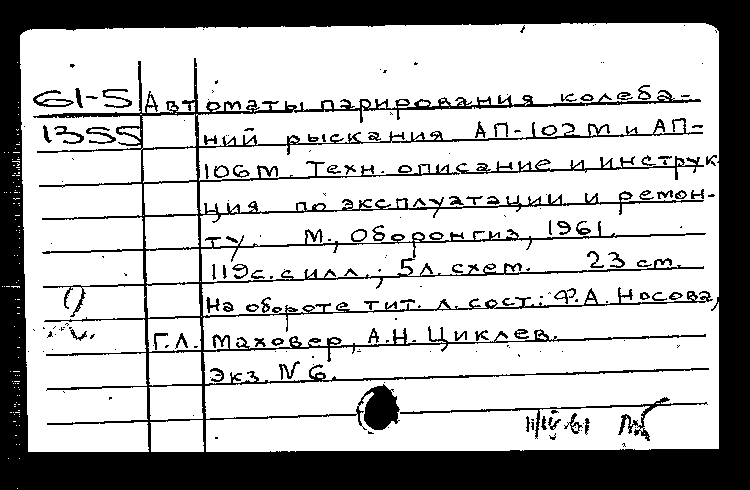 61-5 Автоматы парирования колеба-
1355 ний рыскания АП-102М и АП-
106М. Техн. описание и инструк
ция по эксплуатации и ремон-
ту. М., Оборонгиз, 1961.
119с. с илл.; 5л. схем. 23 см.
На обороте тит. л. сост.: Ф.А. Носова,
Г.Л. Маховер, А.Н. Циклев.
Экз. № 6.
2
11/IV-61